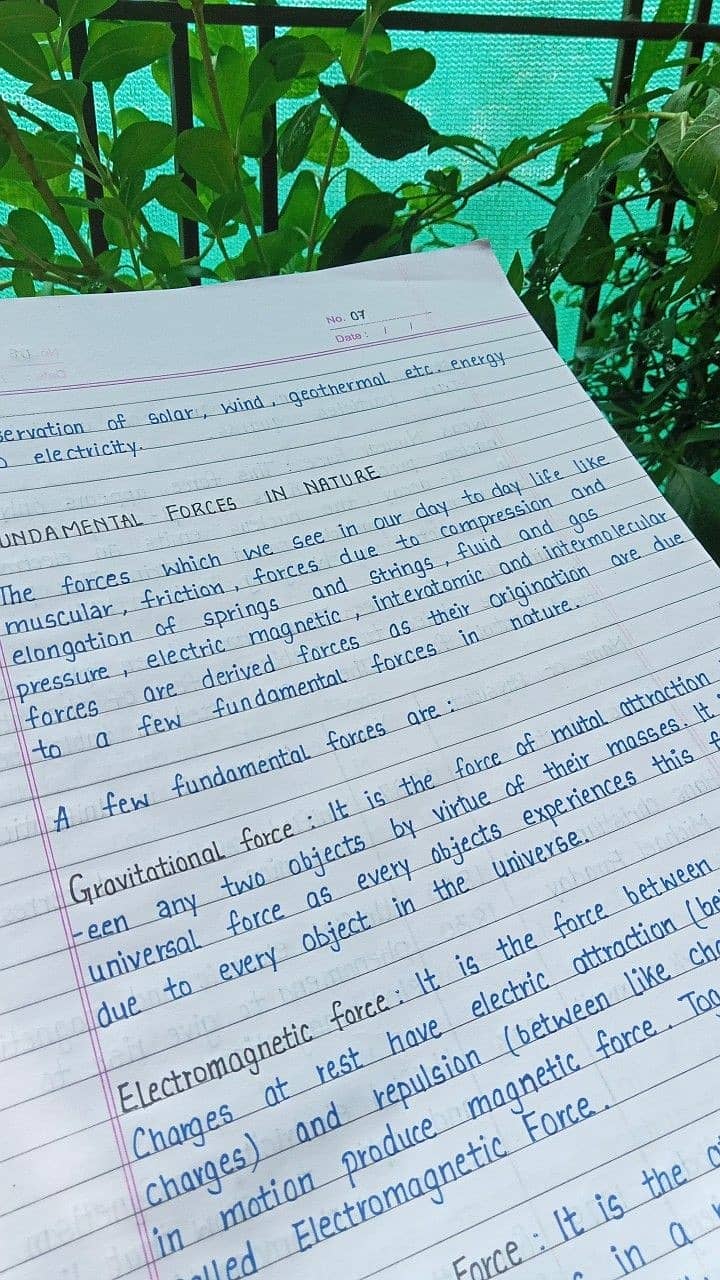 No. 07
Date: / /
servation of solar, wind, geothermal etc. energy
electricity.
UNDAMENTAL FORCES IN NATURE
The forces which we see in our day to day life like
muscular, friction, forces due to compression and
elongation of springs and strings, fluid and gas
pressure, electric magnetic, interatomic and intermolecular
forces are derived forces as their origination are due
to a few fundamental forces in nature.
A few fundamental forces are :
Gravitational force : It is the force of mutal attraction
-een any two objects by virtue of their masses. It
universal force as every objects experiences this f
due to every object in the universe.
Electromagnetic force : It is the force between
Charges at rest have electric attraction (be
charges) and repulsion (between like cha
in motion produce magnetic force. Tog
lled Electromagnetic Force.
Force : It is the
in a